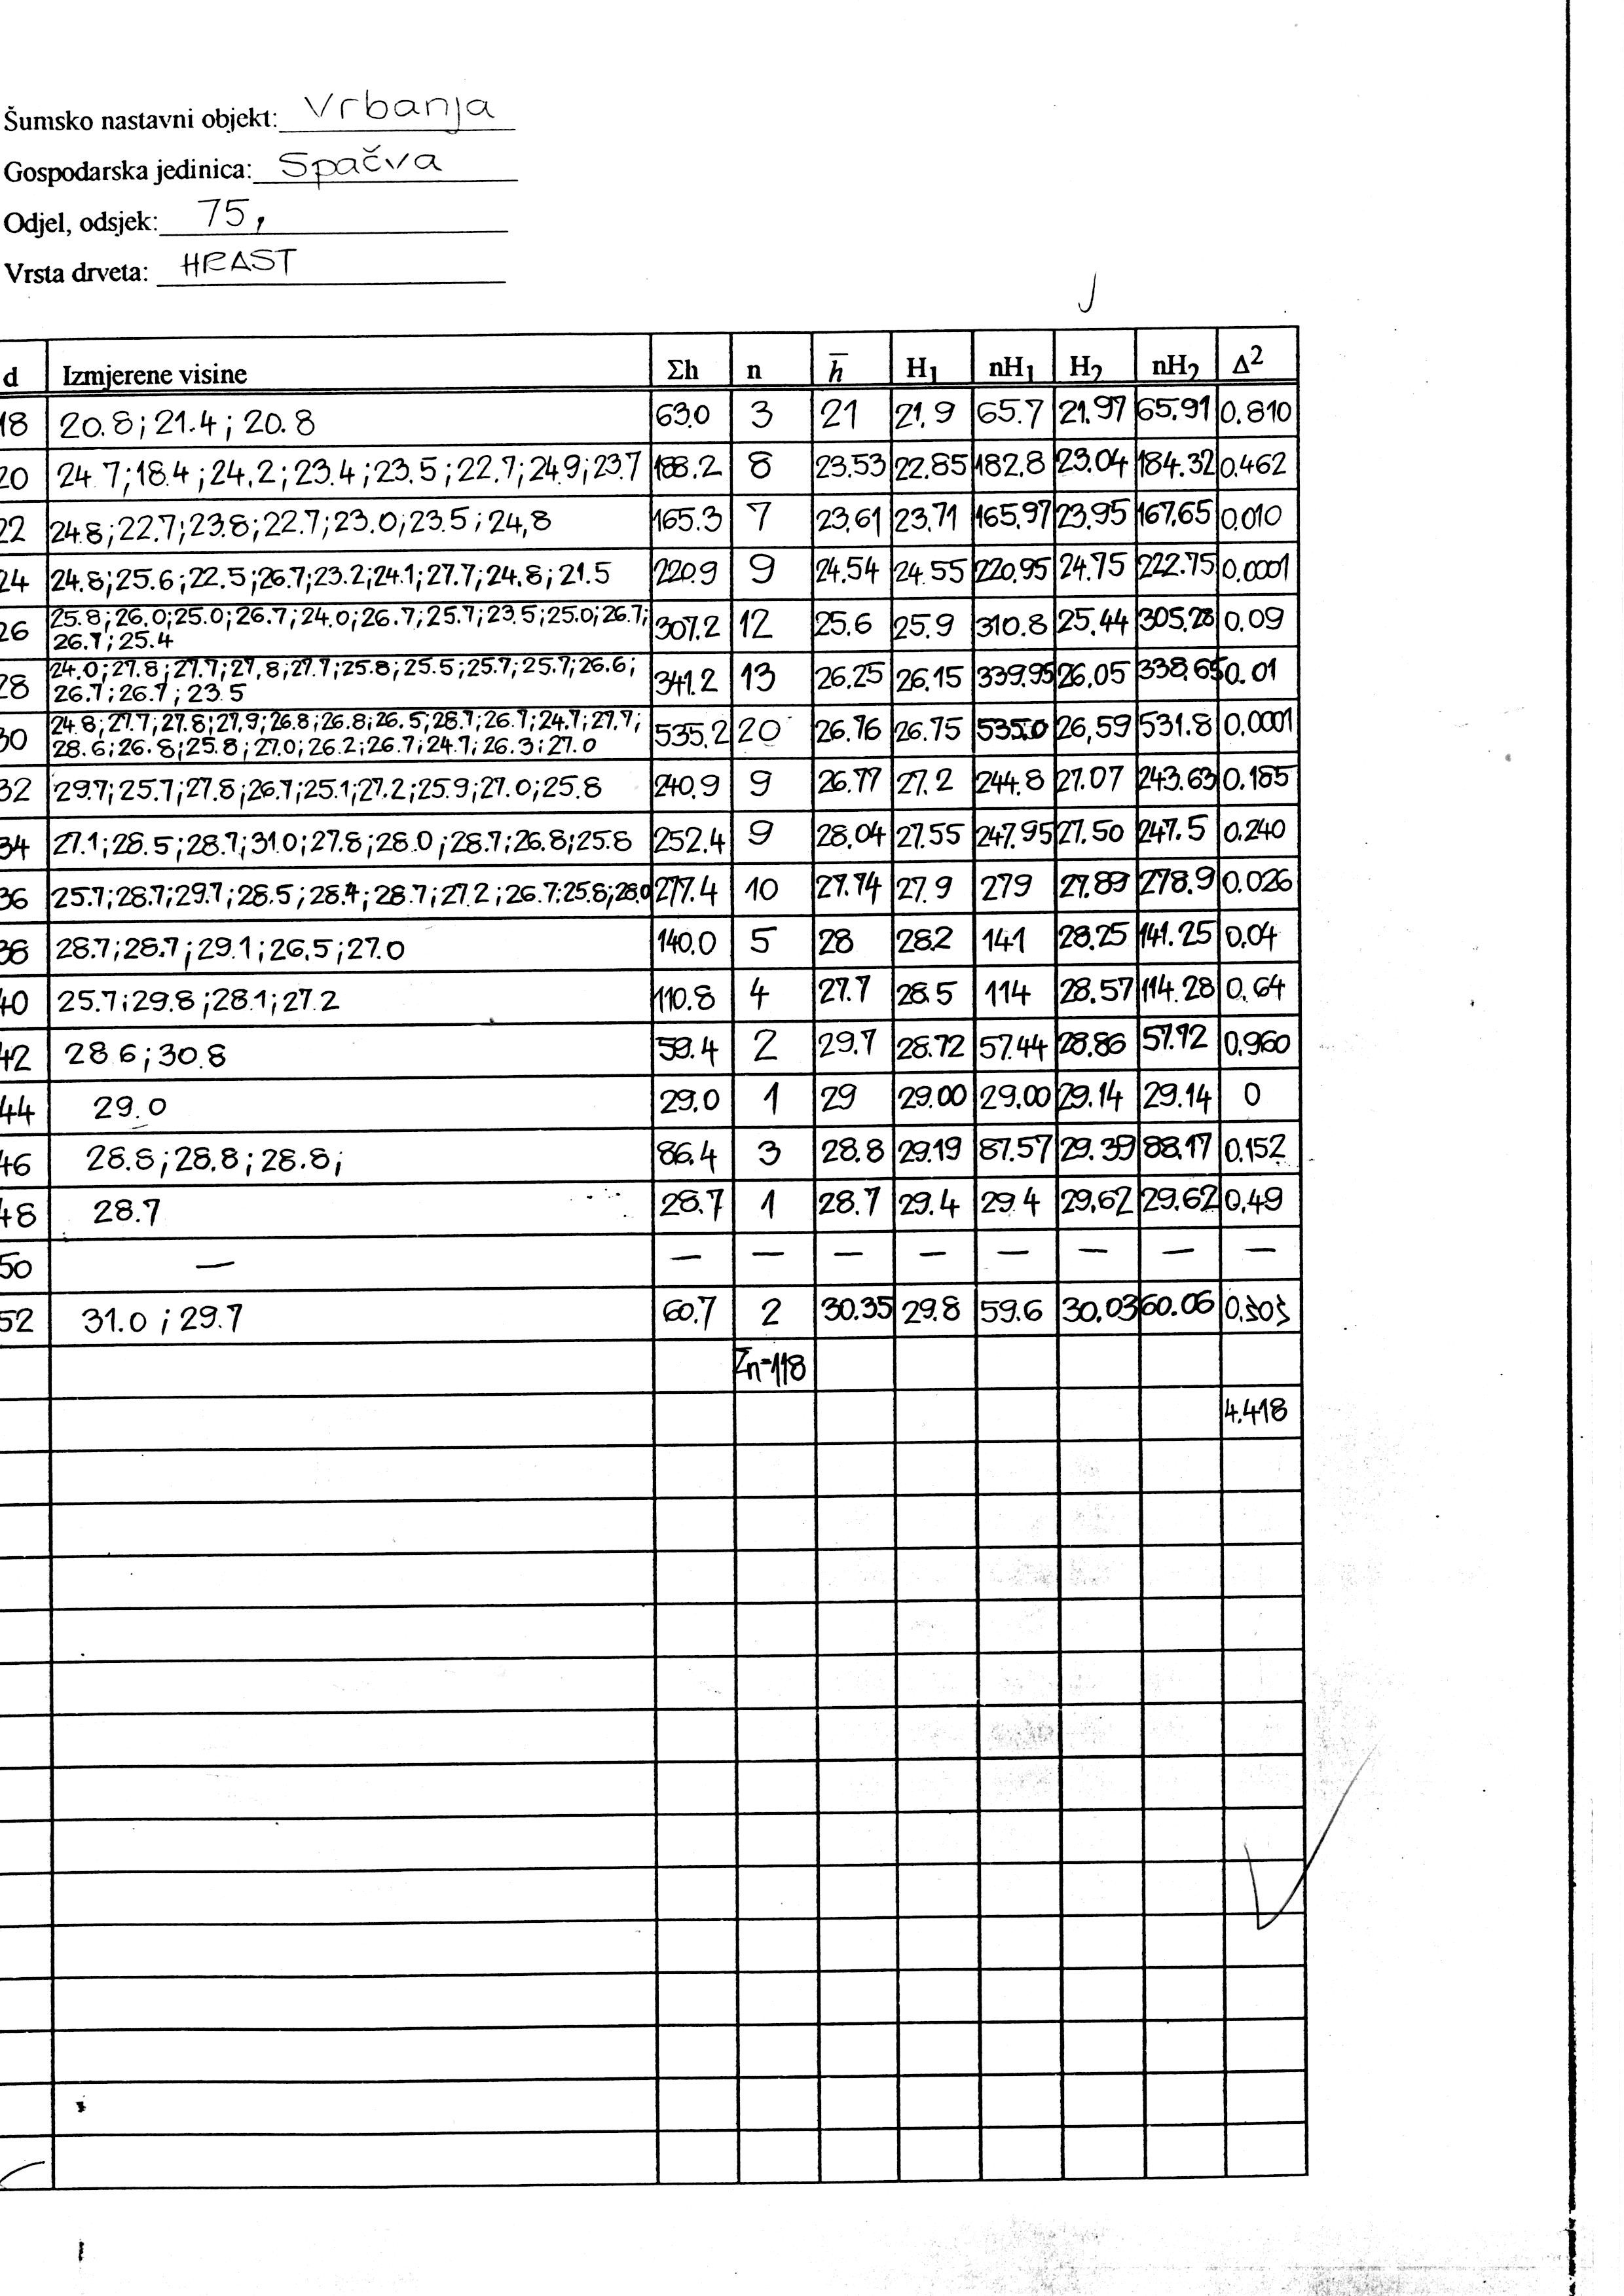 Šumsko nastavni objekt: Vrbanja
Gospodarska jedinica: Spačva
Odjel, odsjek: 75,
Vrsta drveta: HRAST
d Izmjerene visine Σh n h̅ H₁ nH₁ H₂ nH₂ Δ²
18 20.8; 21.4; 20.8 63.0 3 21 21.9 65.7 21.97 65.91 0.810
20 24.7; 18.4; 24.2; 23.4; 23.5; 22.7; 24.9; 23.7 188.2 8 23.53 22.85 182.8 23.04 184.32 0.462
22 24.8; 22.7; 23.8; 22.7; 23.0; 23.5; 24,8 165.3 7 23.61 23.71 165.97 23.95 167.65 0.010
24 24.8; 25.6; 22.5; 26.7; 23.2; 24.1; 27.7; 24.8; 21.5 220.9 9 24.54 24.55 220.95 24.75 222.75 0.0001
26 25.8; 26.0; 25.0; 26.7; 24.0; 26.7; 25.7; 23.5; 25.0; 26.7;
26.7; 25.4 307.2 12 25.6 25.9 310.8 25.44 305.28 0.09
28 24.0; 27.8; 27.7; 27,8; 27.7; 25.8; 25.5; 25.7; 25.7; 26.6;
26.7; 26.7; 23.5 341.2 13 26.25 26.15 339.95 26.05 338.65 0.01
30 24.8; 27.7; 27.8; 27.9; 26.8; 26.8; 26.5; 28.7; 26.7; 24.7; 27.7;
28.6; 26.8; 25.8; 27.0; 26.2; 26.7; 24.7; 26.3; 27.0 535.2 20 26.76 26.75 535.0 26,59 531.8 0.0001
32 29.7; 25.7; 27.8; 26.7; 25.1; 27.2; 25.9; 27.0; 25.8 240.9 9 26.77 27.2 244.8 27.07 243.63 0.185
34 27.1; 28.5; 28.7; 31.0; 27.8; 28.0; 28.7; 26.8; 25.8 252.4 9 28.04 27.55 247.95 27.50 247.5 0.240
36 25.7; 28.7; 29.7; 28.5; 28.4; 28.7; 27.2; 26.7; 25.8; 28.0 277.4 10 27.74 27.9 279 27.89 278.9 0.026
38 28.7; 28.7; 29.1; 26.5; 27.0 140.0 5 28 28.2 141 28.25 141.25 0.04
40 25.7; 29.8; 28.1; 27.2 110.8 4 27.7 28.5 114 28.57 114.28 0.64
42 28.6; 30.8 59.4 2 29.7 28.72 57.44 28.86 57.72 0.960
44 29.0 29.0 1 29 29.00 29.00 29.14 29.14 0
46 28.8; 28.8; 28.8; 86.4 3 28.8 29.19 87.57 29.39 88.17 0.152
48 28.7 28.7 1 28.7 29.4 29.4 29.62 29.62 0.49
50 — — — — — — — — —
52 31.0; 29.7 60.7 2 30.35 29.8 59.6 30.03 60.06
Σn=118
4.418